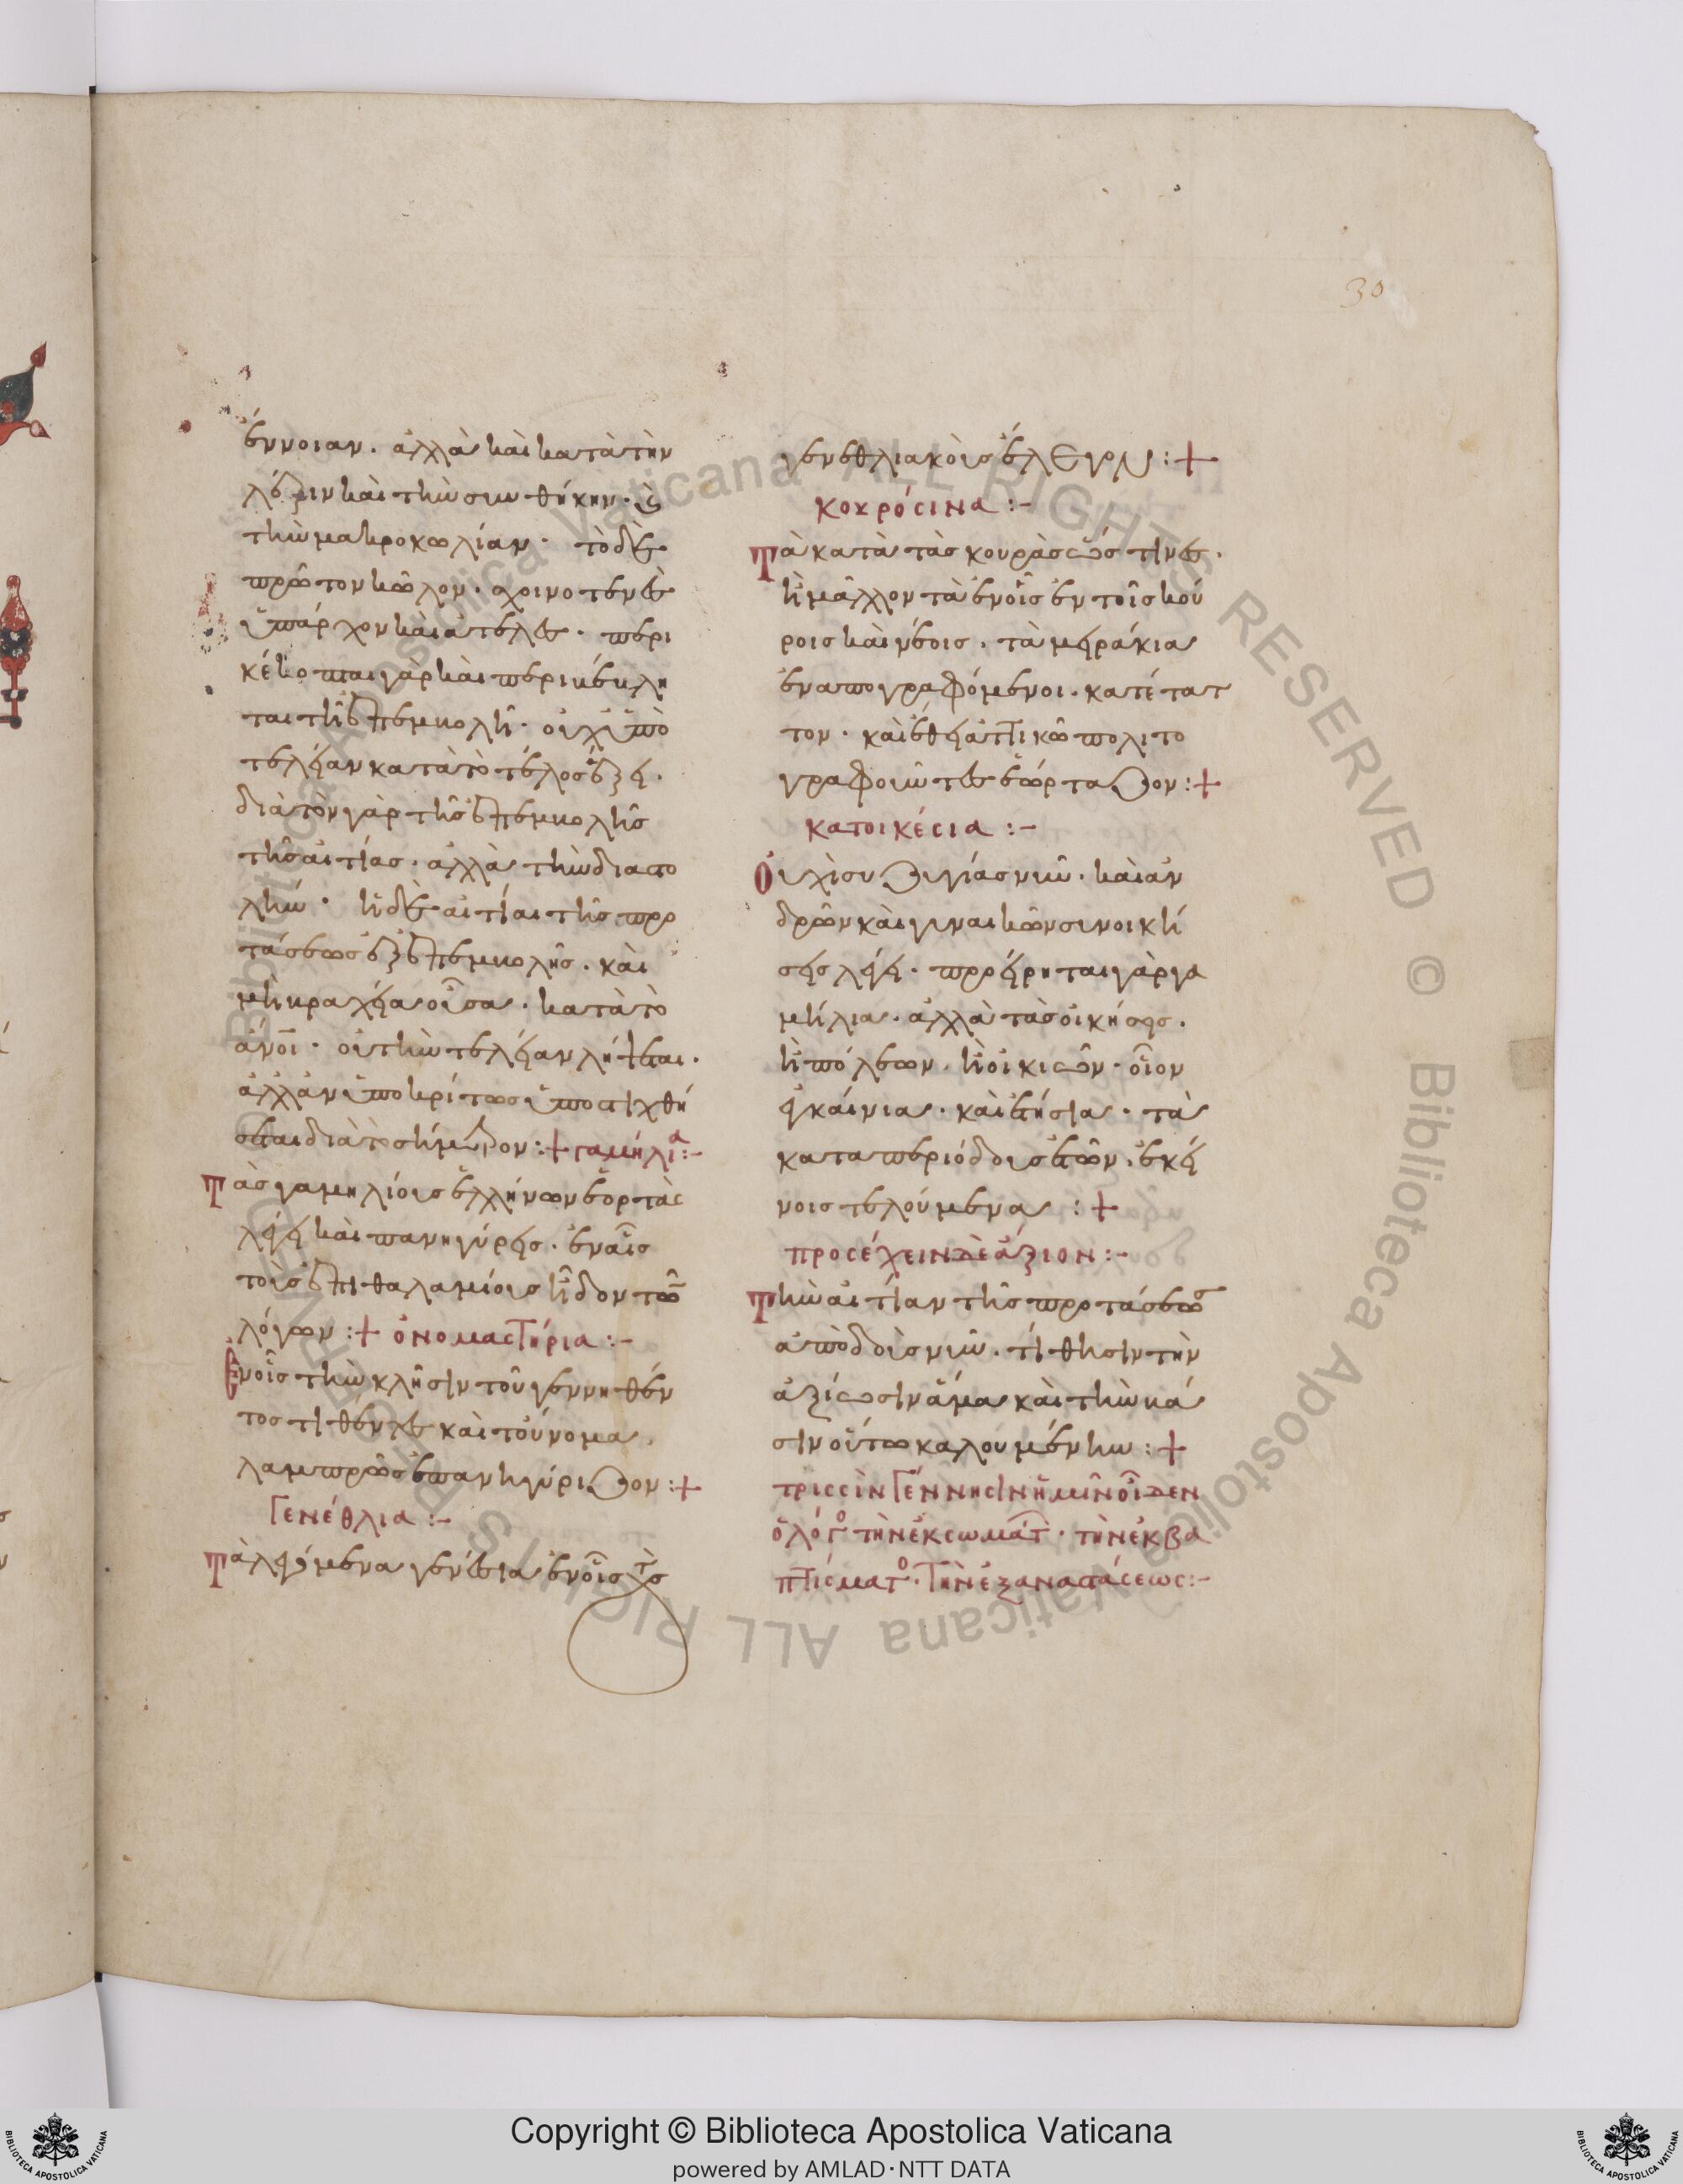 30
ἔννοιαν. ἀλλὰ καὶ κατὰ τὴν
λέξιν καὶ τὴν συνθήκην. καὶ
τὴν μακροκωλίαν. τὸ δὲ
πρῶτον κῶλον. σχοινοτενὲς
ὑπάρχον καὶ ἀτελὲς. περι
κέκοπται γὰρ καὶ περικέκλη
ται τῆ ἐπεμβολῆ. οὐχ ὑπὸ
τελείαν κατὰ τὸ τέλος ἕξει.
διὰ τὸν γὰρ τῆς ἐπεμβολῆς
τῆς αἰτίας. ἀλλὰ τὴν διαστο
λήν. ἡ δὲ αἰτίαι τῆς προ
τάσεως ἐξ ἐπεμβολῆς. καὶ
μὴ βραχεῖα οὖσα. κατὰ τὸ
οὐ τὴν τελείαν λήψεται.
ἀλλ' ἀνυποκρίτως ὑποστιχθή
σεται διὰ τὸ σήμερον :+ γαμήλια :-
Τὰς γαμηλίους ἑλλήνων ἑορτὰς
λέγει καὶ πανηγύρεις. ἐν αἷς
τοὺς ἐπιθαλαμίους ἦδον τῶν
λόγων :+ ὀνομαστήρια :-
Ἐν οἷς τὴν κλῆσιν τοῦ γεννηθέν
τος τιθέντες καὶ τοὔνομα,
λαμπρῶς ἐπανηγύριζον :+
Γενέθλια :-
Τὰ λεγόμενα γενέσια ἐν οἷς τοὺς
γενεθλιακοὺς ἔλεγον :+
κουρόσυνα :-
Τὰ κατὰ τὰς κουρὰς ὥς τινες.
ἢ μᾶλλον τὰ ἐν οἷς ἐν τοῖς κού
ροις καὶ νέοις. τὰ μειράκια
ἐναπογραφόμενοι. κατέτατ
τον. καὶ ἔθει ἀττικῶ πολιτο
γραφοῦντες ἑώρταζον :+
κατοικέσια :-
Οὐχὶ συζυγίας νῦν. καὶ ἀν
δρῶν καὶ γυναικῶν συνοική
σεις λέγει. προείρηται γὰρ γα
μήλια. ἀλλὰ τὰς οἰκήσεις.
ἢ πόλεων. ἢ οἰκιῶν. οἷον
ἐγκαίνια. καὶ ἐτήσια. τὰ
κατα περιόδους ἐτῶν. ἐκεί
νοις τελούμενα :+
προσέχειν δὲ ἄξιον :-
Τὴν αἰτίαν τῆς προτάσεως
ἀποδοὺς νῦν. τίθησιν τὴν
ἀξίωσιν ἅμα καὶ τὴν βά
σιν οὕτω καλουμένην :+
τρισσὴν Γέννησιν ἡμῖν οἶδεν
ὁ λόγος τὴν ἐκ σωμάτ. τὴν ἐκ βα
πτίσματος. Τὴν ἐξ αναστάσεως :-
Copyright © Biblioteca Apostolica Vaticana
powered by AMLAD·NTT DATA